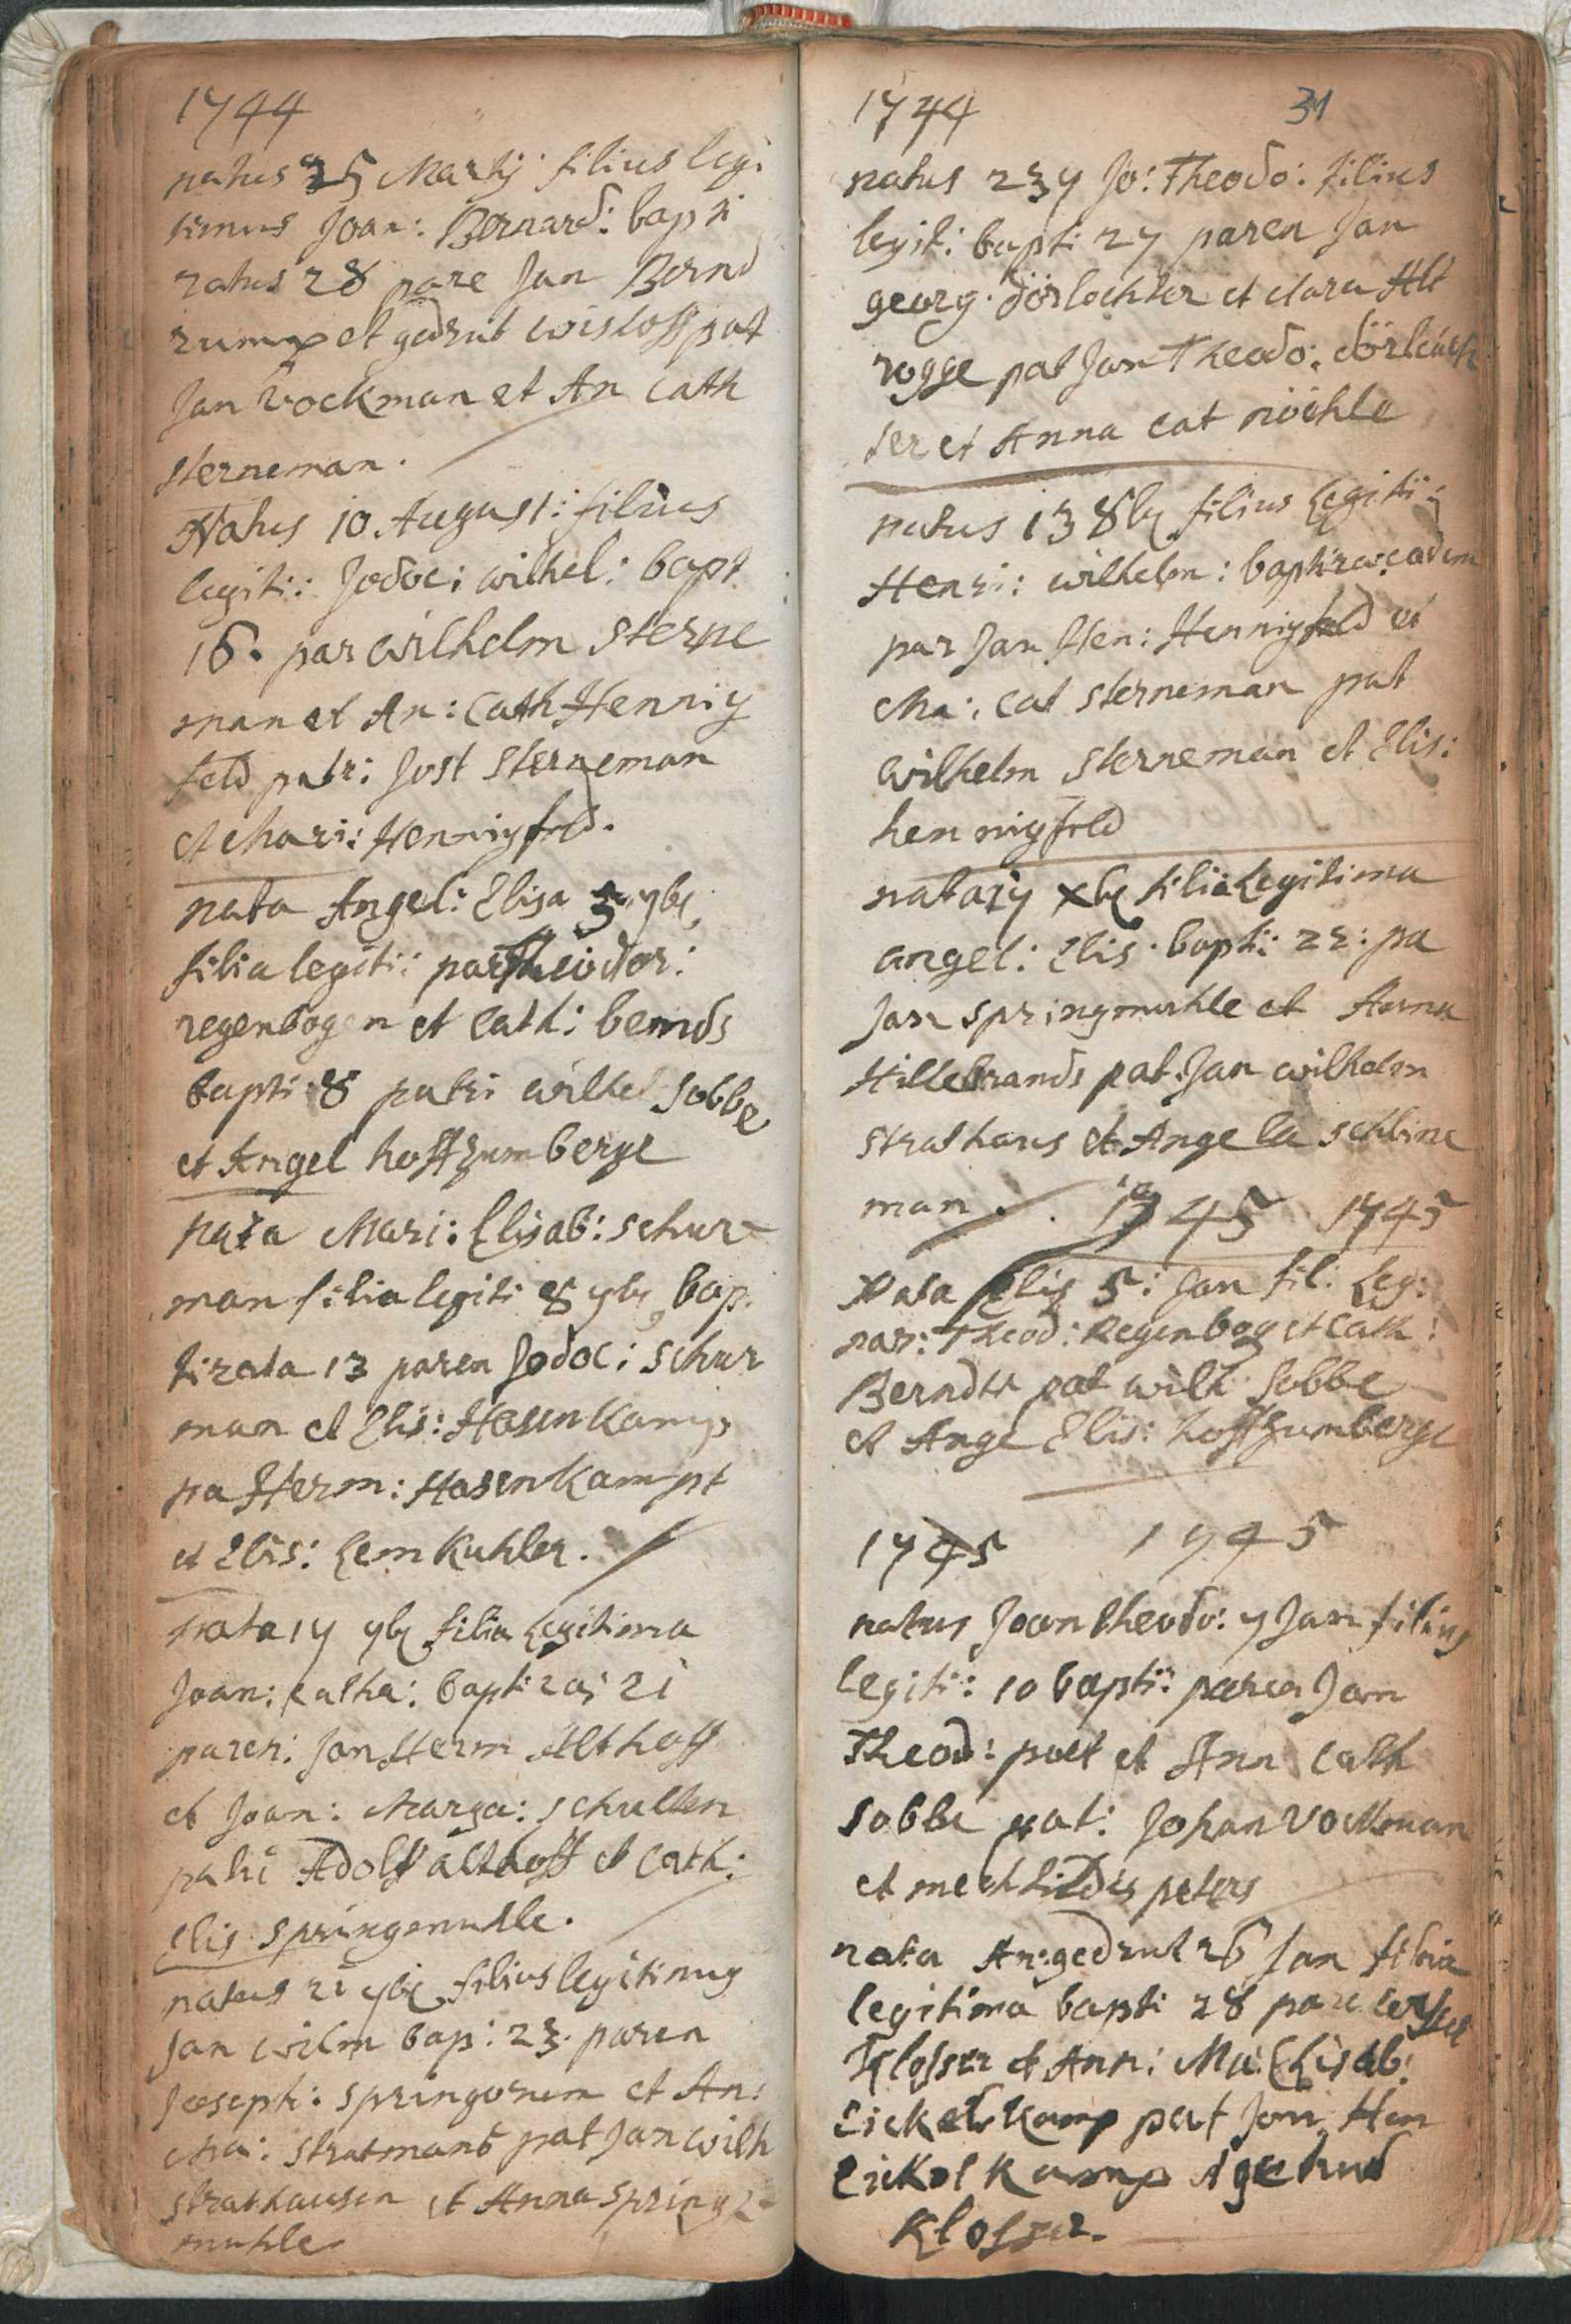 1744
natus 25 Martij filius legi
timus Joan: Bernard: bapti
zatus 28 pare Jan Bernd
rump et gedrut wishoff pat
Jan vockman et An Cath
sterneman.
Natus 10. August: filius
legiti: Jodoc: wilhel: bapt
16. par wilhelm Sterne
man et An: Cath Hennig
feld patr: Jost Sterneman
et Mari: Hennigfeld.
nata Angel: Elisa 5 7br,
filia legiti: par Theodor:
regenbogen et Cath: bernds
bapti 8 patri wilhel Sobbe
et Angel hoffzumberge
nata Mari: Elisab: schur-
man filia legiti 8 7br, bap.
tizata 13 paren Jodoc: schur
man et Elis: Hasenkamp
pa Herm: Hasenkampt
et Elis: Lemkuhler.
nata 17 7br filia legitima
Joan: Catha: baptiza; 21
paren: Jan Herm Althoff
et Joan: Marga: schulten
patri Adolf althoff et Cath:
Elis: springemuhle.
natus 21 7br filius legitimus
Jan wilm bap: 23. paren
Joseph: springorum et An:
Ma: stratmans pat Jan wilh
strathausen et Anna spring-
muhle
1744 31
natus 23 7 Jo: Theodo: filius
legit: bapti 27 paren Jan
georg. dörlochter et clara Alt
rogge pat Jan Theodo: dörlöch
ter et Anna cat möhle
natus 13 8br filius legiti:
Henri: wilhelm: baptizat: eadem
par Jan Hen: Hennigfeld et
Ma: Cat sterneman pat
wilhelm sterneman et Elis:
hennigfeld
nata 17 xbr filia legitima
angel: Elis. bapti: 22: pa
Jan springmuhle et Anna
Hillebrands pat. Jan wilhelm
strathaus et Angela schline
man. 1745 1745
Nata Elis 5: Jan fil: Leg:
par: Theod: Regenbog et Cath:
Berndts pat wilh Sobbe
et Ange Elis: hoffzumberge
1745 1745
natus Joan theodo: 7 Jan filius
legiti: 10 bapti: paren Jan
Theod: poet et Ann Cath
sobbe pat: Johan Vockman
et mechtildis peters
nata An: gedrut 26 Jan filia
legitima bapti 28 pare
Klosser et Ann: Ma: Elisab:
Eickelkamp pat Jan Hen
Eickelkamp et gedrud
Klosser.